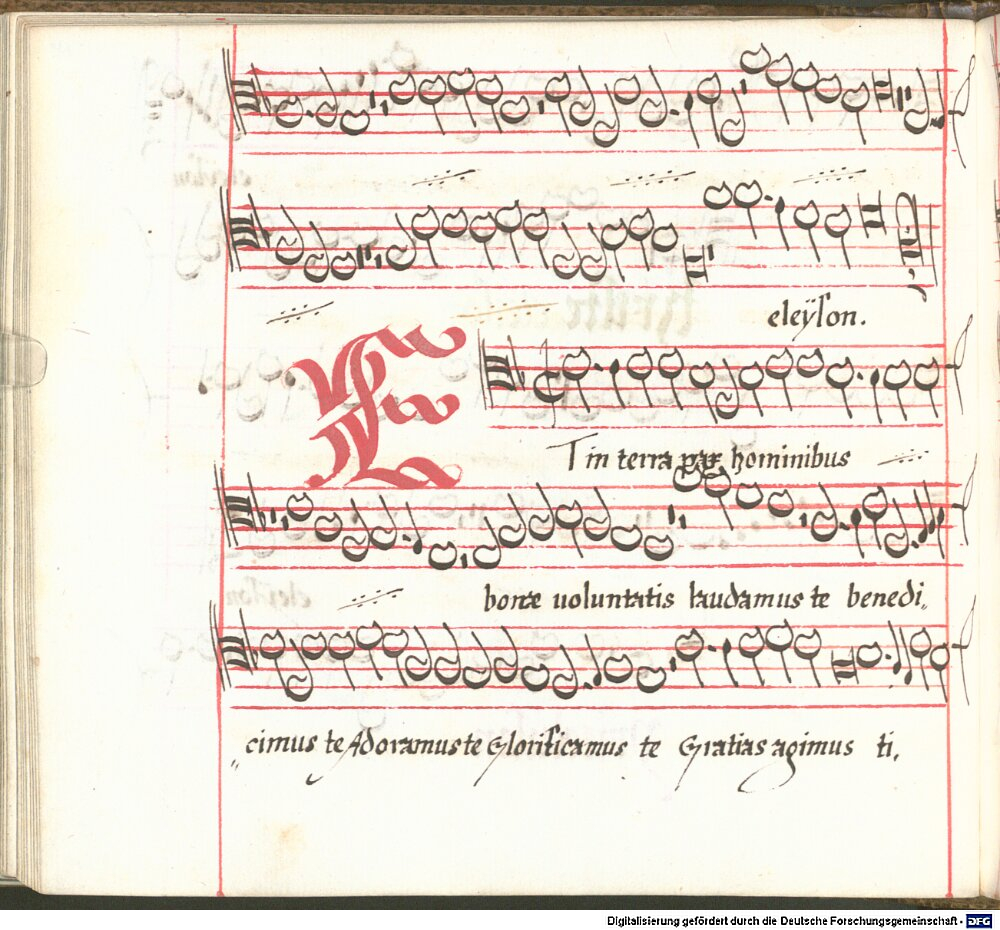 eleÿson.
ET in terra pax hominibus
bonæ uoluntatis laudamus te benedi„
„cimus te Adoramus te Glorificamus te Gratias agimus ti,
Digitalisierung gefördert durch die Deutsche Forschungsgemeinschaft - DFG